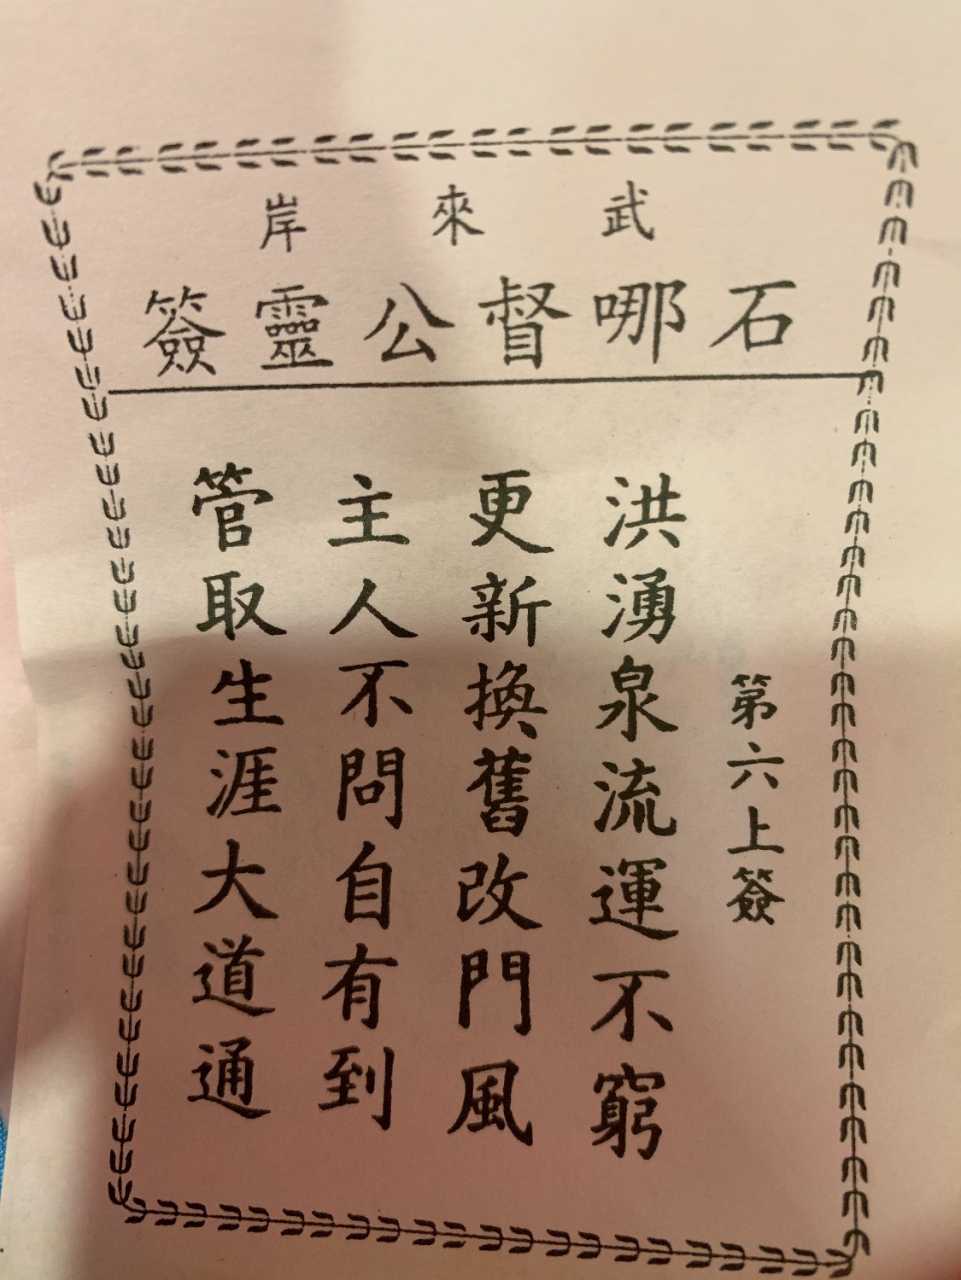 武來岸
石哪督公靈簽
第六上簽
洪湧泉流運不窮
更新換舊改門風
主人不問自有到
管取生涯大道通